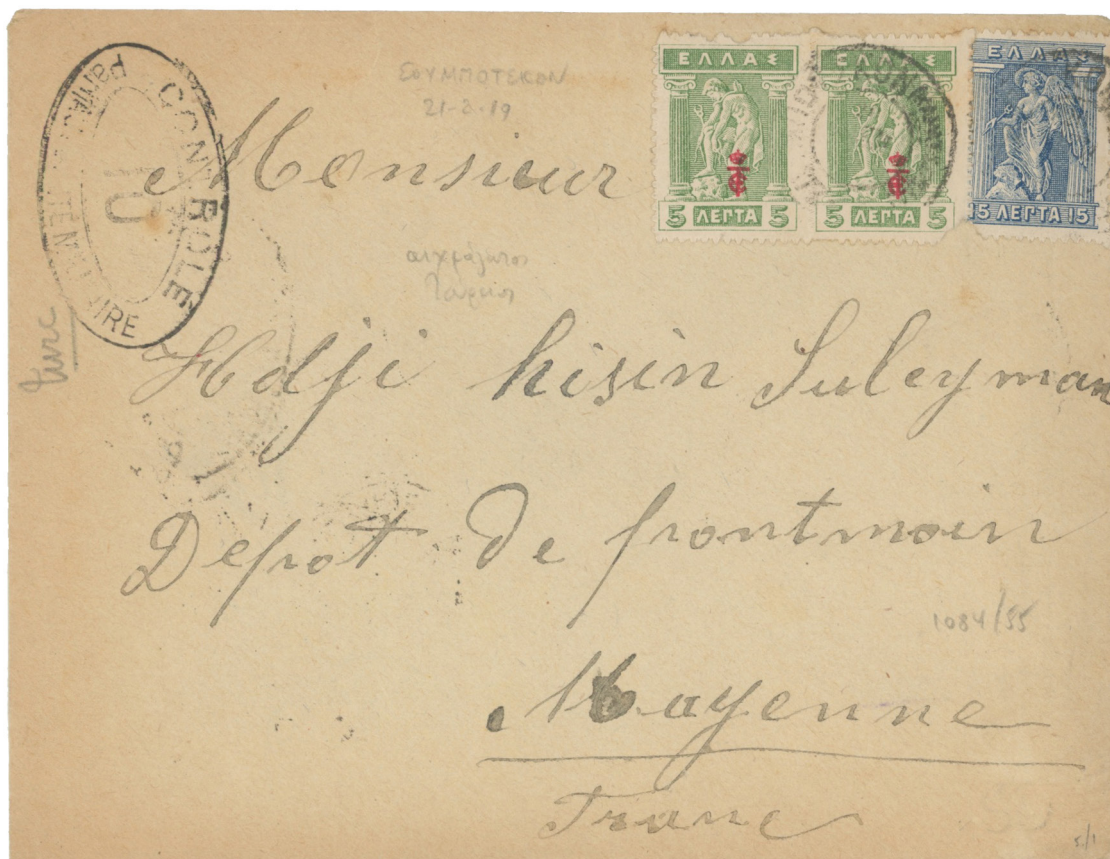 CONTRÔLE
10
ΣΟΥΜΠΟΤΕΚΟΝ
21-8-19
ΕΛΛΑΣ
5 ΛΕΠΤΑ 5
ΕΛΛΑΣ
5 ΛΕΠΤΑ 5
ΕΛΛΑΣ
15 ΛΕΠΤΑ 15
Monsieur
turc
Hdji hisin Suleyman
Depot de frontmain
1084/55
Mayenne
Franc
5/1